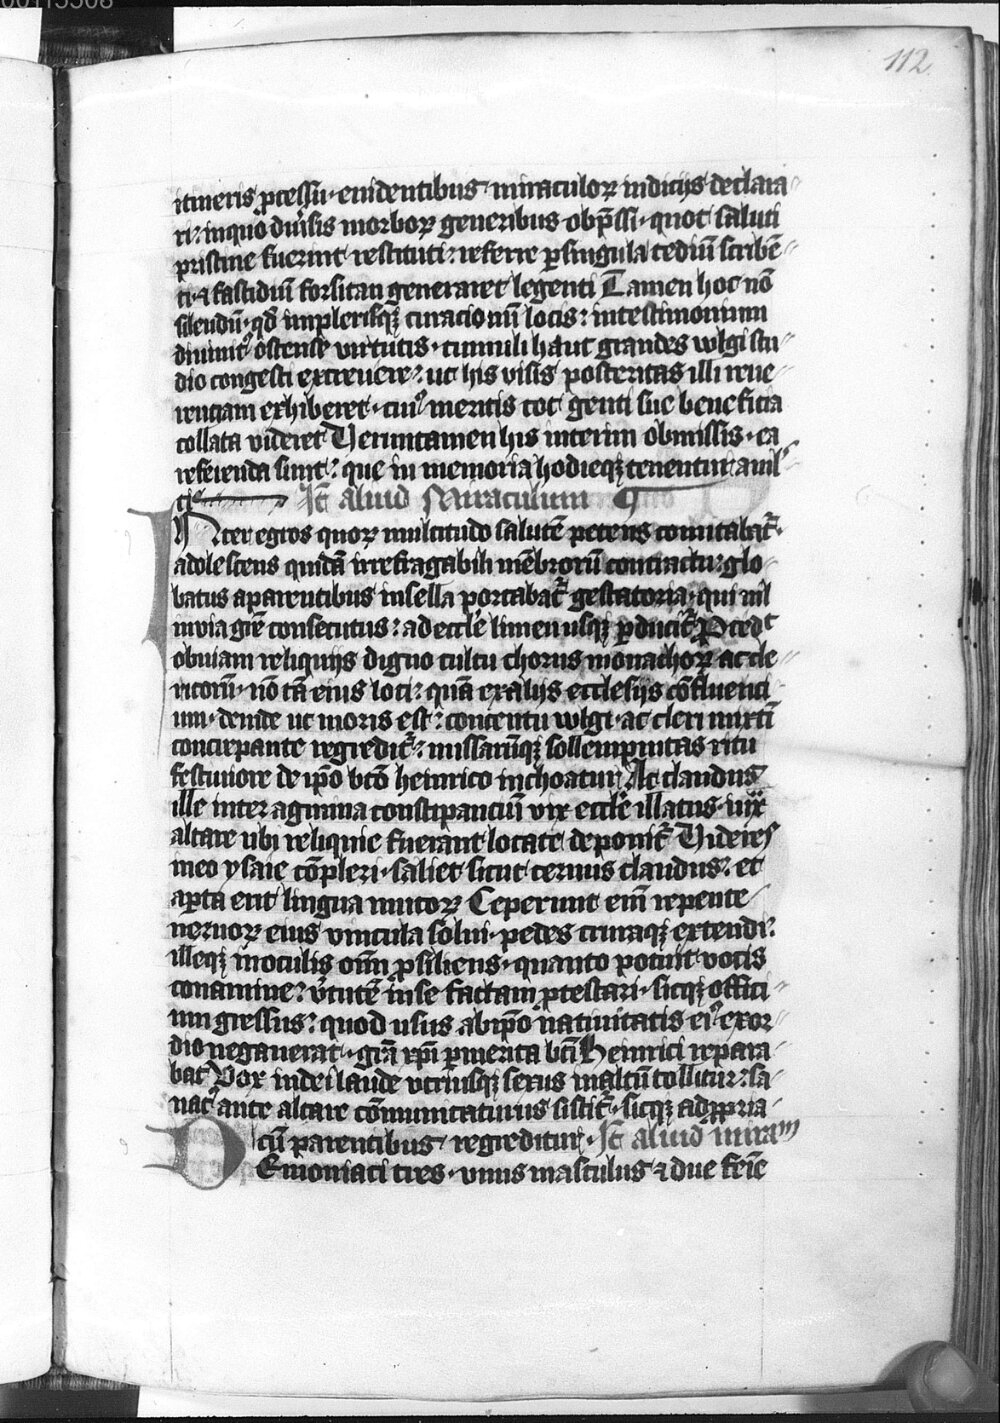 00113308
112
itineris ꝓcessu · euidentibus miraculoꝝ indicijs declara
ri: inquo diu͛sis morboꝝ generibus obp̄ssi · quot saluti
pristine fuerint restituti: referre ꝑsingula tediū scribē
ti · ⁊ fastidiū forsitan generaret legenti Tamen hoc nō
silendū · qd̛ inplerisqꝫ curacionū locis: intestimonium
diuinitꝰ ostense virtutis · tumuli haut grandes wlgi stu
dio congesti excreuere: ut his visis posteritas illi reue
renciam exhiberet · cuiꝰ meritis tot genti sue beneficia
collata videret Veruntamen his interim obmissis · ea
referenda sunt: que in memoria hodieqꝫ tenentur a mil
ti Itē aliud Miraculum
INter egros quoꝝ multitudo salutē petens comitabat͛ ·
adolescens quidā irrefragabili mēbrorū contractu: glo
batus a parentibus in sella portabat͛ gestatoria · qui nil
in via gr̄e consecutus: ad eccl̄e limen usqꝫ ꝑducit͛ Pced̄t
obuiam reliquijs digno cultu chorus monachoꝝ ac cle
ricorū · nō tā eius loci: quā ex alijs ecclesijs cōfluenti
um · deinde ut moris est: concentu wlgi ac cleri mixtī
concrepante regredit͛: missarūqꝫ sollempnitas ritu
festiuiore de ip̄o bt̄o heinrico inchoatur At claudus
ille inter agmina constipanciū vix eccl̄e illatus · iux̄
altare ubi reliquie fuerant locate deponit͛ Videres
in eo ysaie cōpleri · saliet sicut ceruus claudus: et
aꝑta erit lingua mutoꝝ Ceperunt eni͞ repente
neruoꝝ eius vincula solui · pedes cruraqꝫ extendi:
illeqꝫ in oculis oīm ꝓsiliens · quanto potuit vocis
conamine: v͛tutē in se factam ꝓtestari · sicqꝫ offici
um gressus: quod usus ab ip̄o natiuitatis eiꝰ exor
dio negauerat · gr̄a xp̄i ꝑ merita bt̄i Heinrici repara
bat͛ Vox in dei laude vtriusqꝫ sexus in altū tollitur: sa
nat͛ ante altare cōmunicaturus sistit͛ · sicqꝫ ad ꝓpria
cū parentibus regreditur · Itē aliud miraᵐ
DEmoniaci tres · vnus masculus ⁊ due fēie